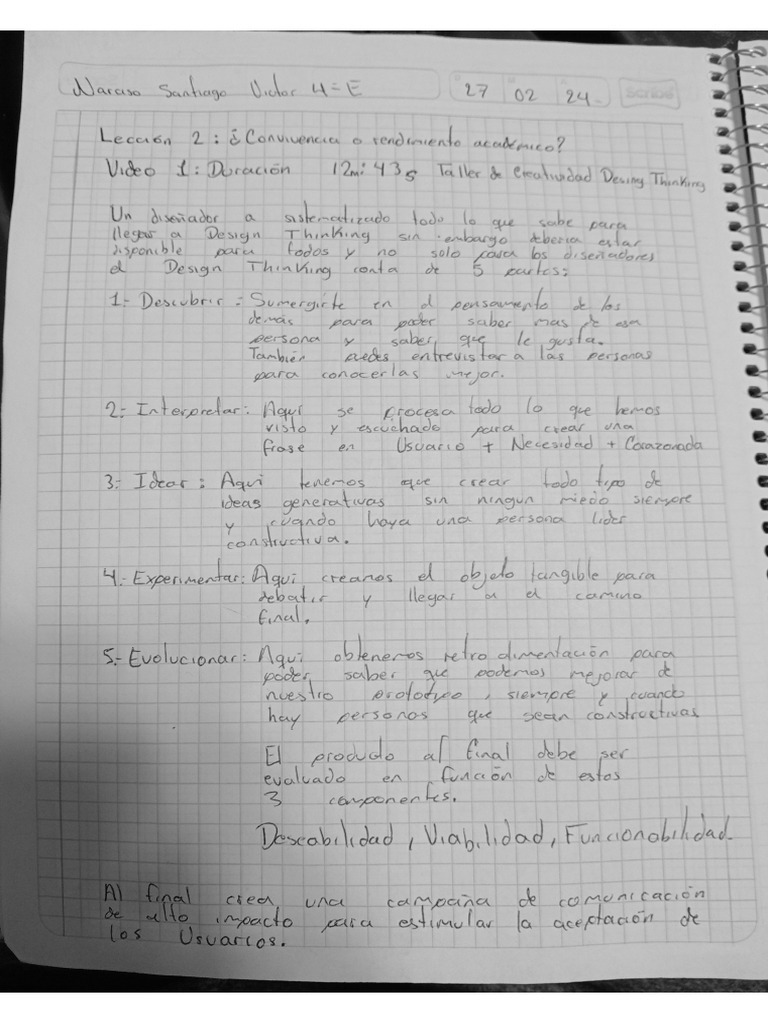 Narciso Santiago Victor 4=E 27 02 24 scribe
Lección 2: ¿Convivencia o rendimiento académico?
Video 1: Duración 12m: 43s Taller de Creatividad Desing Thinking
Un diseñador a sistematizado todo lo que sabe para
llegar a Design Thinking sin embargo deberia estar
disponible para todos y no solo para los diseñadores
el Design Thinking conta de 5 partes:
1.- Descubrir = Sumergirte en el pensamiento de los
demás para poder saber mas de esa
persona y saber que le gusta.
También puedes entrevistar a las personas
para conocerlas mejor.
2.- Interpretar: Aquí se procesa todo lo que hemos
visto y escuchado para crear una
frase en Usuario + Necesidad + Corazonada
3.- Idear: Aqui tenemos que crear todo tipo de
ideas generativas sin ningun miedo siempre
y cuando haya una persona lider
constructiva.
4.- Experimentar: Aqui creamos el objeto tangible para
debatir y llegar a el camino
final.
5.- Evolucionar: Aqui obtenemos retroalimentación para
poder saber que podemos mejorar de
nuestro prototipo, siempre y cuando
hay personas que sean constructivas
El producto al final debe ser
evaluado en función de estos
3 componentes.
Deseabilidad, Viabilidad, Funcionabilidad.
Al final crea una campaña de comunicación
de alto impacto para estimular la aceptación de
los Usuarios.